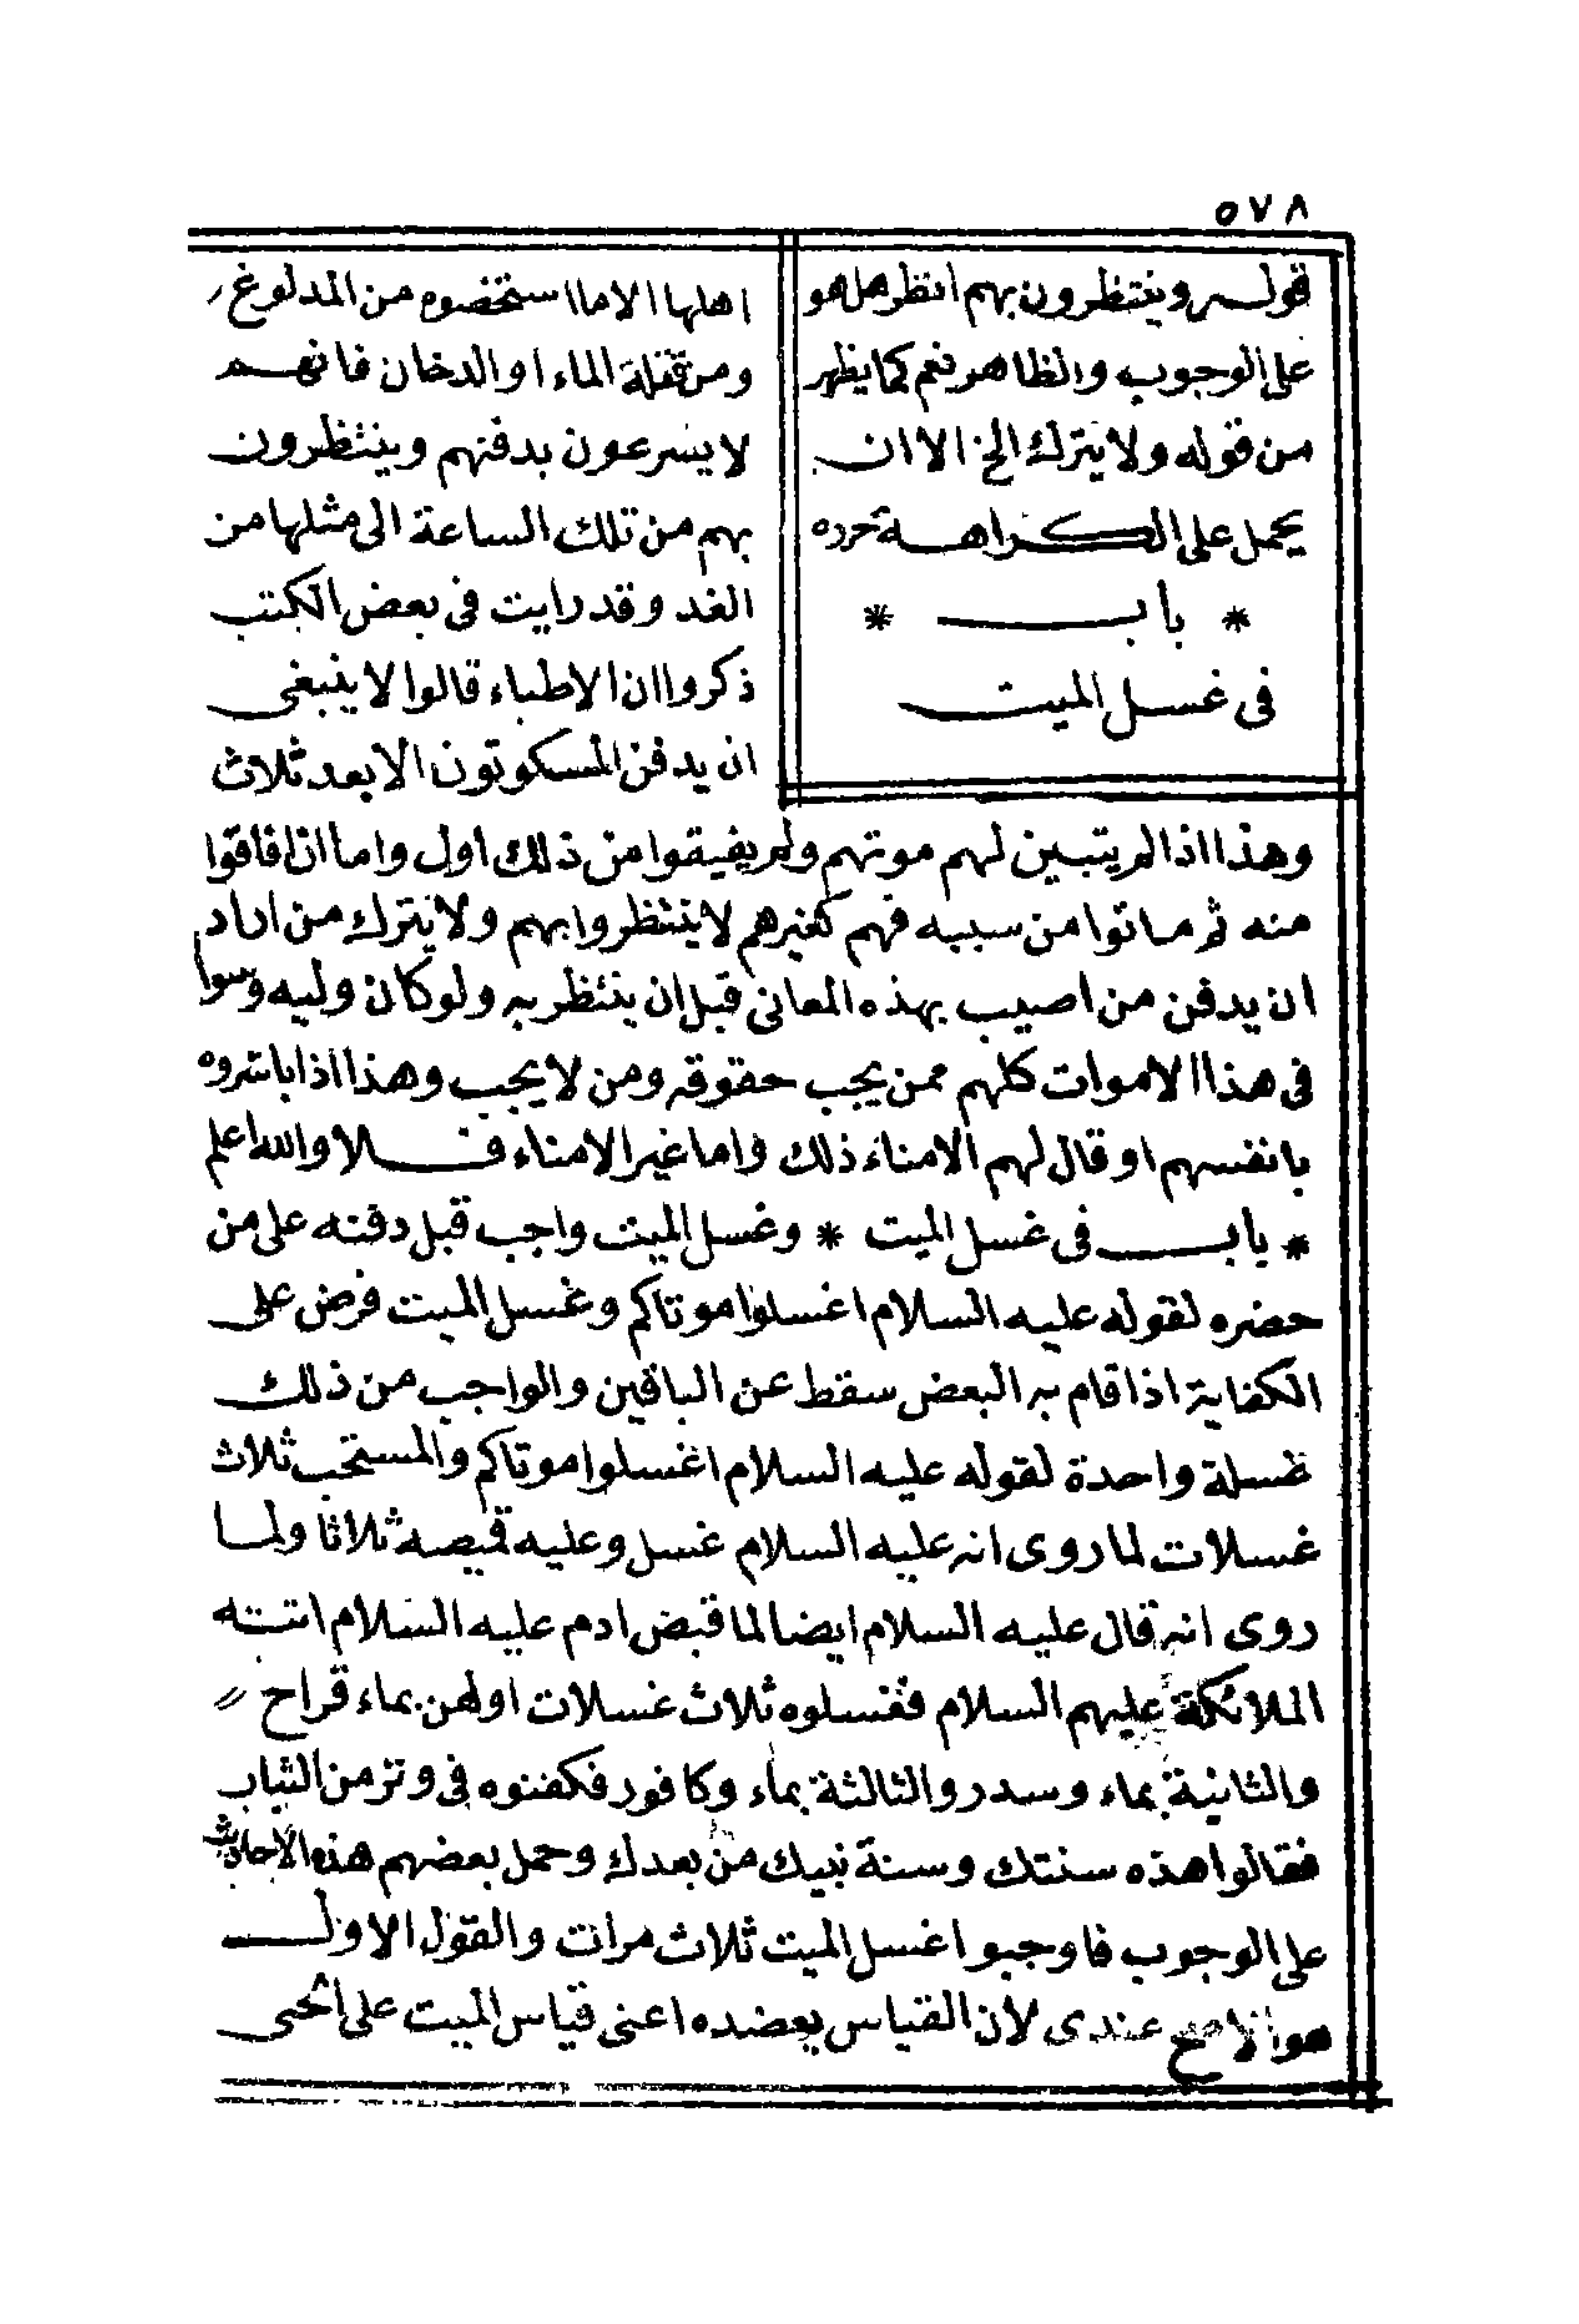 ٥٧٨
قولـه وينتظرون بهم انظر هل هو
على الوجوب والظاهر نعم كما يظهر
من قوله ولا يترك الخ الا ان
يحمل على الكراهة حرره
* باب *
في غسل الميت
اهلها الا ما استخصوه من المدلوغ
ومن قتله الماء او الدخان فانهم
لا يسرعون بدفنهم وينتظرون
بهم من تلك الساعة الى مثلها من
الغد وقد رايت في بعض الكتب
ذكروا ان الاطباء قالوا لا ينبغي
ان يدفن المسكوتون الا بعد ثلاث
وهذا اذا لم يتبين لهم موتهم ولم يفيقوا من ذلك اول واما ان افاقوا
منه ثم ماتوا من سببه فهم كغيرهم لا ينتظروا بهم ولا يترك من اراد
ان يدفن من اصيب بهذه المعاني قبل ان ينتظر به ولو كان وليه وسوا
في هذا الاموات كلهم ممن يجب حقوقه ومن لا يجب وهذا اذا باشروه
بانفسهم او قال لهم الامناء ذلك واما غير الامناء فـلا والله اعلم
* باب في غسل الميت * وغسل الميت واجب قبل دفنه على من
حضره لقوله عليه السلام اغسلوا موتاكم وغسل الميت فرض على
الكفاية اذا قام به البعض سقط عن الباقين والواجب من ذلك
غسلة واحدة لقوله عليه السلام اغسلوا موتاكم والمستحب ثلاث
غسلات لما روى انه عليه السلام غسل وعليه قميصه ثلاثا ولما
روى انه قال عليه السلام ايضا لما قبض ادم عليه السلام اتته
الملائكة عليهم السلام فغسلوه ثلاث غسلات اولهن بماء قراح
والثانية بماء وسدر والثالثة بماء وكافور فكفنوه في وتر من الثياب
فقالوا هذه سنتك وسنة نبيك من بعدك وحمل بعضهم هذه الاحاديث
على الوجوب فاوجبوا غسل الميت ثلاث مرات والقول الاول
هو الاصح عندى لان القياس يعضده اعنى قياس الميت على الحى